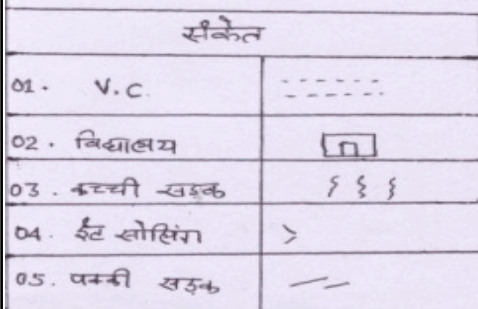 संकेत
01. V.C.
02. विद्यालय
03. कच्ची सड़क
04. ईट सोलिंग
05. पक्की सड़क